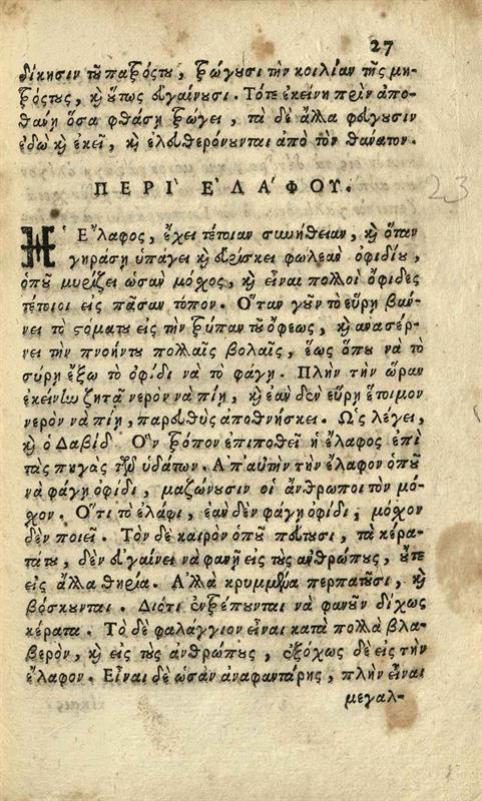 27
δίκησιν τοῦ πατρός του, τρώγουσι τὴν κοιλίαν τῆς μη-
τρός τους, καὶ οὕτως εὐγαίνουσι. Τότε ἐκείνη πρὶν ἀπο-
θανῇ ὅσα φθάσῃ τρώγει, τὰ δὲ ἄλλα φεύγουσιν
ἐδῶ καὶ ἐκεῖ, καὶ ἐλευθερόνουνται ἀπὸ τὸν θάνατον.
ΠΕΡΙ' Ε'ΛΑ'ΦΟΥ.
23
Ἡ Ἔλαφος, ἔχει τέτοιαν συνήθειαν, καὶ ὅταν
γηράσῃ ὑπάγει καὶ εὑρίσκει φωλεὰν ὀφιδίου,
ὁποῦ μυρίζει ὡσὰν μόχος, καὶ εἶναι πολλοὶ ὄφιδες
τέτοιοι εἰς πᾶσαν τόπον. Ὅταν γοῦν τὸ εὕρῃ βαί-
νει τὸ στόμα του εἰς τὴν τρύπαν τοῦ ὄφεως, καὶ ἀνασέρ-
νει τὴν πνοήν του πολλαῖς βολαῖς, ἕως ὅπου νὰ τὸ
σύρῃ ἔξω τὸ ὀφίδι νὰ τὸ φάγῃ. Πλὴν τὴν ὥραν
ἐκείνην ζητᾷ νερὸν νὰ πίῃ, καὶ ἐὰν δὲν εὕρῃ ἕτοιμον
νερὸν νὰ πίῃ, παρευθὺς ἀποθνήσκει. Ὡς λέγει,
καὶ ὁ Δαβίδ Ὃν τρόπον ἐπιποθεῖ ἡ ἔλαφος ἐπὶ
τὰς πηγὰς τῶν ὑδάτων. Ἀπ' αὐτὴν τὴν ἔλαφον ὁποῦ
νὰ φάγῃ ὀφίδι, μαζώνουσιν οἱ ἄνθρωποι τὸν μό-
χον. Ὅτι τὸ ἐλάφι, ἐὰν δὲν φάγῃ ὀφίδι, μόχον
δὲν ποιεῖ. Τὸν δὲ καιρὸν ὁποῦ πέπτουσι, τὰ κέρα-
τά του, δὲν εὐγαίνει νὰ φανῇ εἰς τοὺς ἀνθρώπους, οὔτε
εἰς ἄλλα θηρία. Ἀλλὰ κρυμμένα περπατοῦσι, καὶ
βόσκουνται. Διότι ἐντρέπουνται νὰ φανοῦν δίχως
κέρατα. Τὸ δὲ φαλάγγιον εἶναι κατὰ πολλὰ βλα-
βερὸν, καὶ εἰς τοὺς ἀνθρώπους, ἐξόχως δὲ εἰς τὴν
ἔλαφον. Εἶναι δὲ ὡσὰν ἀναφαντάρης, πλὴν εἶναι
μεγαλ-